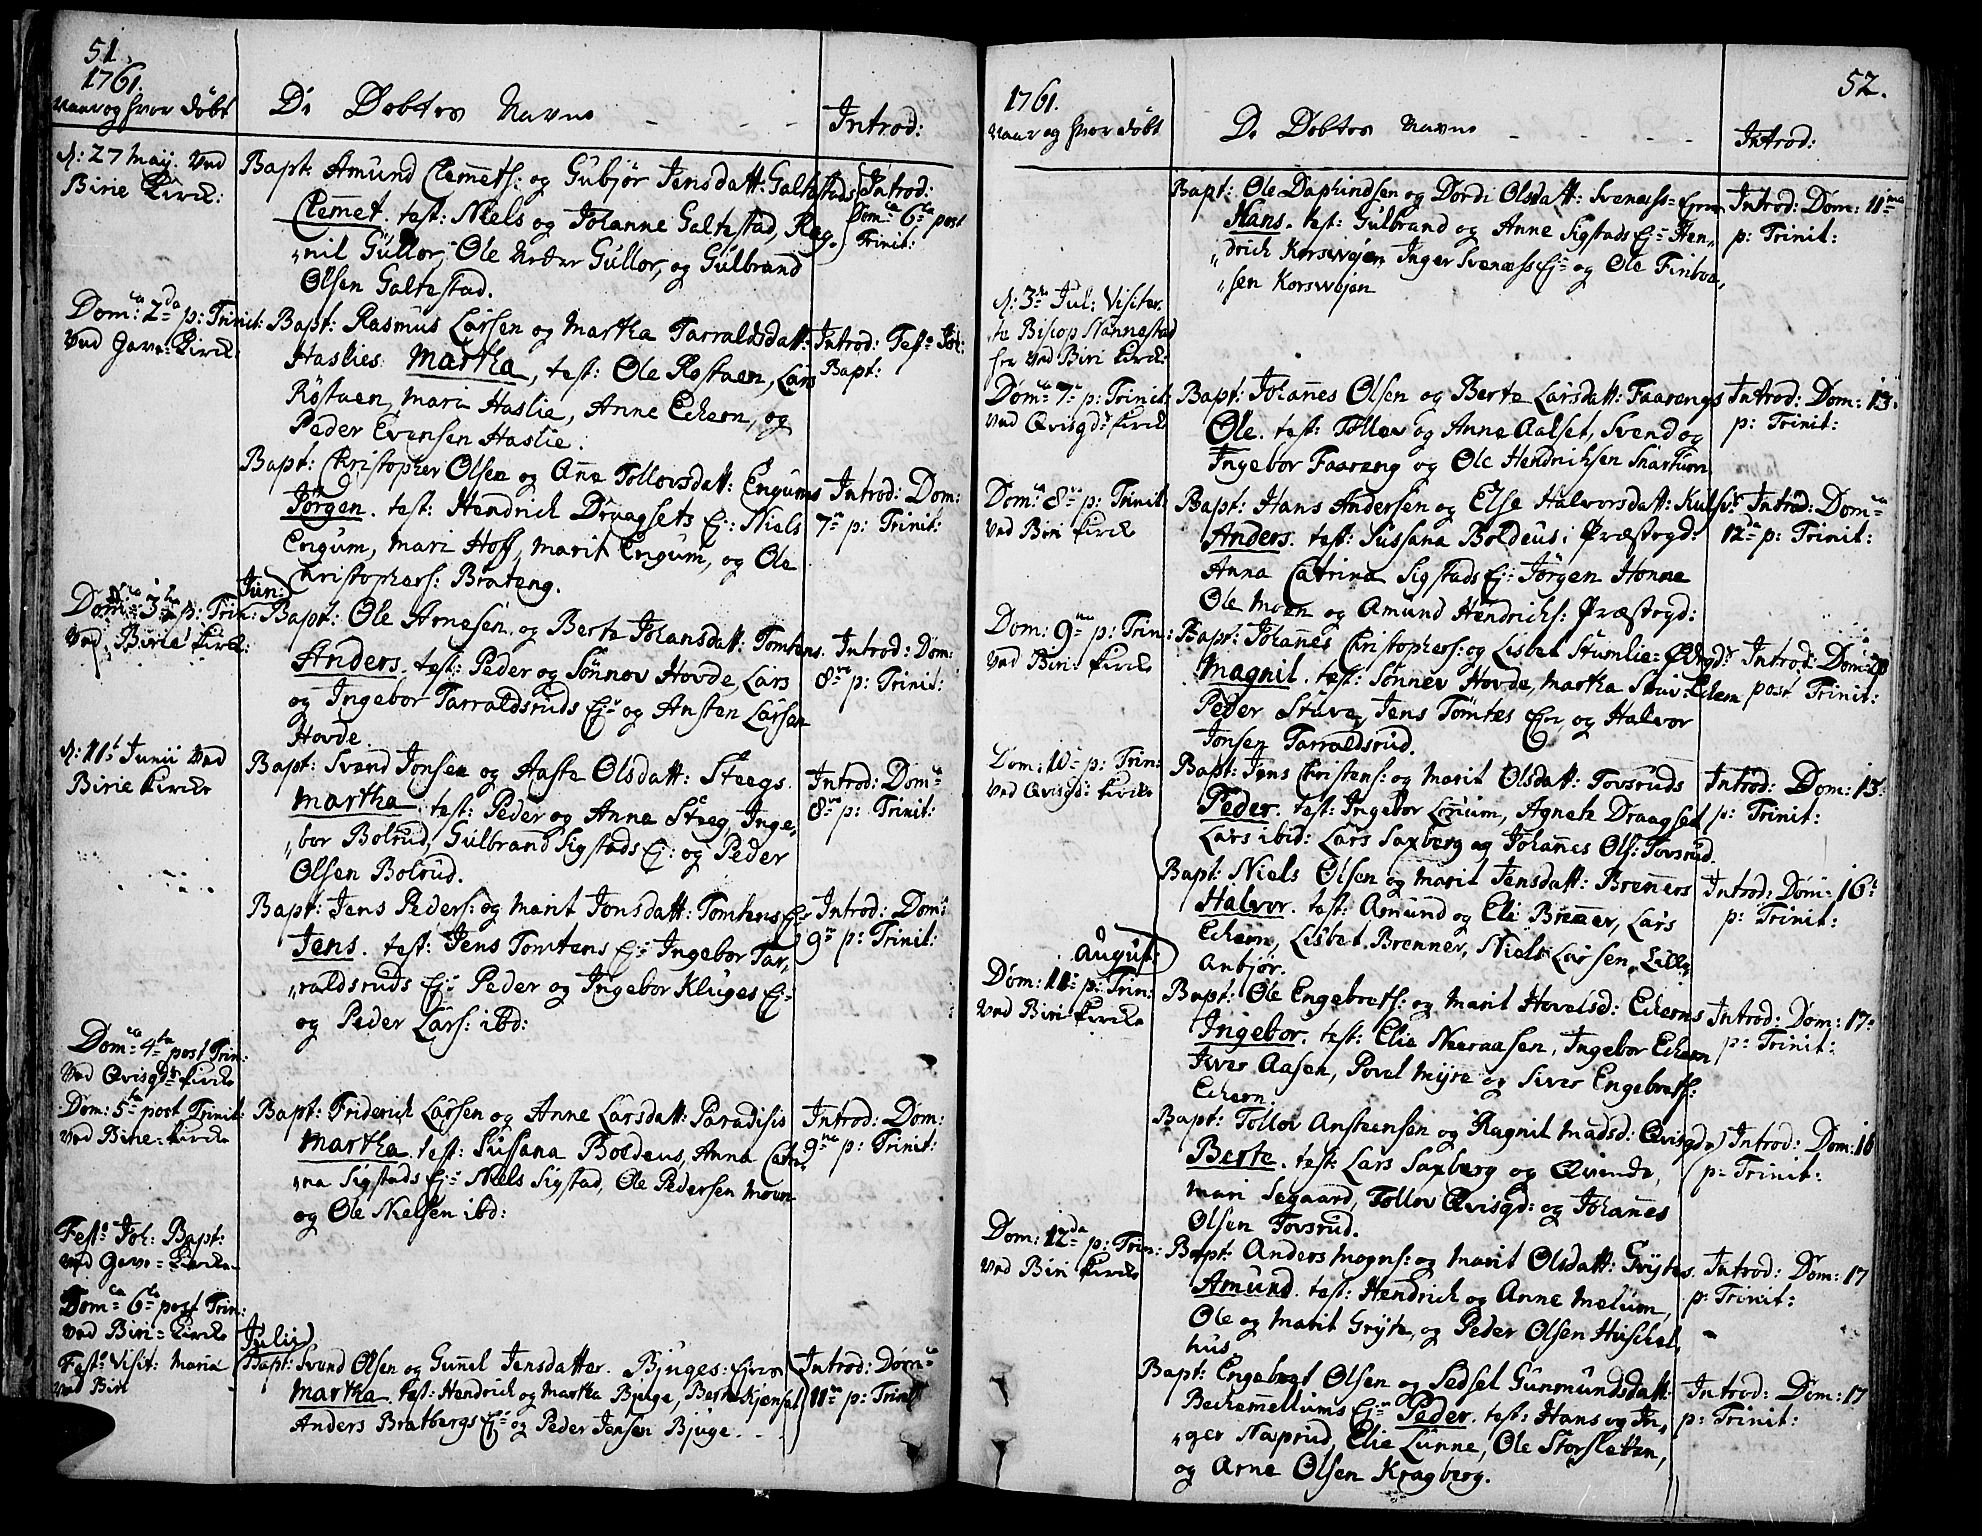 51.
1761.
Naar og hvor döbt
De Döbtes Navne
Introd:
d: 27 Maij. Ved
Birie Kirck:
Bapt: Amund Clemets: og Gubjør Jensdatt: Galtestads
Clemet. test: Niels og Johanne Galtestad, Rag-
nil Gullor, Ole Neder Gullor, og Gulbrand
Olsen Galtestad.
Introd:
Dom:ca 6ta post
Trinit:
Dom:ca 2da p: Trinit:
Ved Gave-Kirck:
Bapt: Rasmus Larsen og Martha Tarraldsdatt:
Haslies Martha, test: Ole Röstuen, Lars
Röstuen, Mari Haslie, Anne Eckern, og
Peder Evensen Haslie.
Introd: Festo Joh:
Bapt:
Bapt: Christopher Olsen og Anne Tollovsdatt: Engums
Jörgen. test: Hendrich Draagsets Ej: Niels
Engum, Mari Hoff, Marit Engum, og Ole
Christophers: Brateng.
Introd: Dom:
7a p: Trinit:
Jun:
Dom:ca 3tia p: Trin:
Ved Birie Kirck:
Bapt: Ole Arnesen og Berte Johansdatt: Tomtens.
Anders. test: Peder og Sönnov Hovde, Lars
og Ingebor Tarraldsruds Ej: og Ansten Larsen
Hovde.
Introd: Dom:
8va p: Trinit:
d: 11t Junii Ved
Birie Kircke
Bapt: Svend Jonsen og Aaste Olsdatt: Steegs.
Martha. test: Peder og Anne Steeg, Inge-
bor Bolrud, Gulbrand Sigstads Ej: og Peder
Olsen Bolrud.
Introd: Dom:ca
8va p: Trinit:
Bapt: Jens Peders: og Marit Jonsdatt: Tomtens Ej:
Jens. test: Jens Tomtens Ej: Ingebor Tar-
raldsruds Ej: Peder og Ingebor Kluges Ej:
og Peder Lars: ibd:
Introd: Dom:
9na p: Trinit:
Dom:ca 4ta post Trin:
Ved Qvisgds Kircke
Dom: 5ta post Trinit:
Ved Birie-Kircke
Bapt: Friderich Larsen og Anne Larsdatt: Paradisis
Martha. test: Sussana Boldeus, Anna Catri-
na Sigstads Ej: Niels Sigstad, Ole Pedersen Moen
og Ole Nielsen ibd:
Introd: Dom:
9na p: Trinit:
Festo Joh: Bapt:
Ved Gave-Kircke
Dom:ca 6ta post Trin:
Ved Biri-Kircke
Julii
Festo Visit: Maria
Ved Biri
Bapt: Svend Olsen og Gunnil Jensdatter. Bjuges: Ejeren
Martha. test: Hendrich og Martha Bjuge, Berte Kjenset,
Anders Bratbergs Ej: og Peder Jensen Bjuge.
Introd: Dom:ca
11ma p: Trinit
52.
1761.
Naar og hvor döbt
De Döbtes Navne
Introd:
Bapt: Ole Daphindsen og Dordi Olsdatt: Svenæss-Ejer
Hans. test: Gulbrand og Anne Sigstads Ej: Hen-
drich Korsvejen Inger Svenæss Ej: og Ole Finboe-
sen Korsvejen
Introd: Dom: 11ma
p: Trinit:
d: 3die Jul: Visiter-
te Bisop Nannestad
her Ved Biri Kirck:
Dom:ca 7a p: Trinit:
Ved Qvisgds Kirck
Bapt: Johannes Olsen og Berte Larsdatt: Faarengs
Ole. test: Tollov og Anne Aalset, Svend og
Ingebor Faareng og Ole Hendrichsen Snartum
Introd: Dom: 13
p: Trinit:
Dom:ca 8va p: Trinit:
Ved Biri Kirck
Bapt: Hans Andersen og Else Halvorsdatt:
Anders. test: Sussana Boldeus: Præstegd:
Anna Catrina Sigstads Ej: Jörgen Honne
Ole Moen og Amund Hendrichs: Præstegd:
Introd: Dom:ca
12a p: Trinit:
Dom: 9na p: Trin:
Ved Biri-Kircke
Bapt: Johannes Christophers: og Lisbet Stumlie-
Magnil. test: Sönnev Hovde, Martha Eckern
Peder Stuve, Jens Tömtes Ejer, og Halvor
Jonsen Tarraldsrud.
Introd: Dom: 20
post Trinit:
Dom: 10- p: Trin:
Ved Qvisgd: Kircke
Bapt: Jens Christens: og Marit Olsdatt: Tovsruds
Peder. test: Ingebor Lonium, Agnete Draagset
Lars ibid: Lars Saxberg og Johannes Ols: Tovsrud.
Introd: Dom: 13
p: Trinit:
Bapt: Niels Olsen og Marit Jensdatt: Brenners
Halvor. test: Amund og Eli Brenner, Lars
Eckern, Lisbet Brenner, Niels Larsen, Lille
Anbjör.
Introd: Dom: 16
p: Trinit:
August:
Dom: 11- p: Trin:
Ved Biri-Kircke
Bapt: Ole Engebrets: og Marit Hovelsd: Eckerns
Ingebor. test: Elie Neeraasen, Ingebor Eckern
Iver Aasen, Povel Myre og Siver Engebrets:
Eckern.
Introd: Dom: 17
p: Trinit:
Bapt: Tollov Ansteensen og Ragnil Madsd: Qvisgds
Berte. test: Lars Saxberg og Qvinde,
Mari Segaard, Tollov Qvisgd: og Johannes
Olsen Tovsrud.
Introd: Dom: 16
p: Trinit:
Dom: 12da p: Trin:
Ved Biri Kircke
Bapt: Anders Mogns: og Marit Olsdatt: Grytes
Amund. test: Hendrich og Anne Melum,
Ole og Marit Gryte, og Peder Olsen Huskel-
hus.
Introd: Dom: 17
p: Trinit:
Bapt: Engebregt Olsen og Sedsel Gunmundsdatt:
Beckemellums Ej: Peder. test: Hans og In-
ger Næprud, Elie Lunne, Ole Storsletten,
og Arne Olsen Kragberg.
Introd: Dom: 17
p: Trinit: